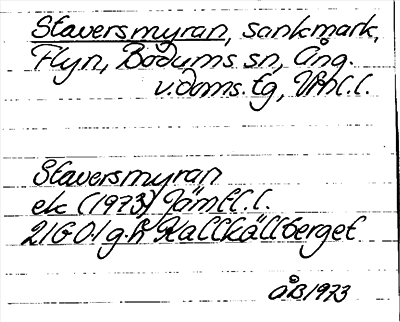 Staversmyran, sankmark,
Flyn, Bodums sn, Ång.
v.doms.tg, Vnl.l.
Staversmyran
ek (1973) Jämtl.l.
21G0.1 g.h Kallkällberget
ÅB 1973